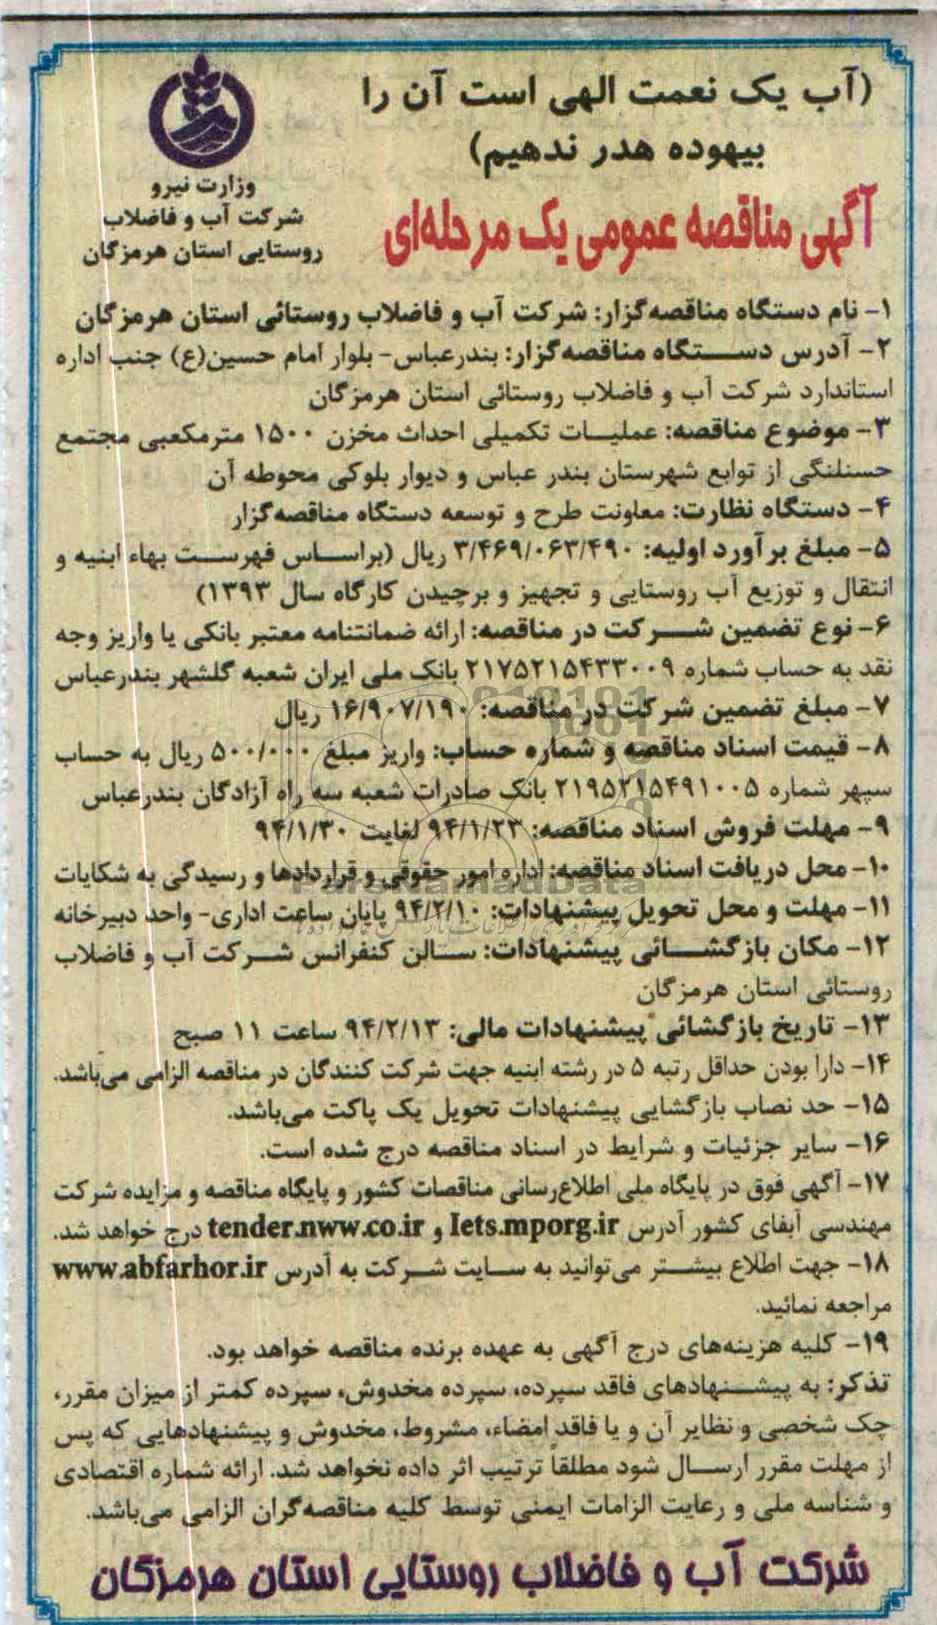 (آب یک نعمت الهی است آن را
بیهوده هدر ندهیم)
وزارت نیرو
شرکت آب و فاضلاب
روستایی استان هرمزگان
آگهی مناقصه عمومی یک مرحله‌ای
۱- نام دستگاه مناقصه‌گزار: شرکت آب و فاضلاب روستائی استان هرمزگان
۲- آدرس دستگاه مناقصه‌گزار: بندرعباس- بلوار امام حسین(ع) جنب اداره
استاندارد شرکت آب و فاضلاب روستائی استان هرمزگان
۳- موضوع مناقصه: عملیات تکمیلی احداث مخزن ۱۵۰۰ مترمکعبی مجتمع
حسنلنگی از توابع شهرستان بندر عباس و دیوار بلوکی محوطه آن
۴- دستگاه نظارت: معاونت طرح و توسعه دستگاه مناقصه‌گزار
۵- مبلغ برآورد اولیه: ۳/۴۶۹/۰۶۳/۴۹۰ ریال (براساس فهرست بهاء ابنیه و
انتقال و توزیع آب روستایی و تجهیز و برچیدن کارگاه سال ۱۳۹۳)
۶- نوع تضمین شرکت در مناقصه: ارائه ضمانتنامه معتبر بانکی یا واریز وجه
نقد به حساب شماره ۲۱۷۵۲۱۵۴۳۳۰۰۹ بانک ملی ایران شعبه گلشهر بندرعباس
۷- مبلغ تضمین شرکت در مناقصه: ۱۶/۹۰۷/۱۹۰ ریال
۸- قیمت اسناد مناقصه و شماره حساب: واریز مبلغ ۵۰۰/۰۰۰ ریال به حساب
سپهر شماره ۲۱۹۵۲۱۵۴۹۱۰۰۵ بانک صادرات شعبه سه راه آزادگان بندرعباس
۹- مهلت فروش اسناد مناقصه: ۹۴/۱/۲۳ لغایت ۹۴/۱/۳۰
۱۰- محل دریافت اسناد مناقصه: اداره امور حقوقی و قراردادها و رسیدگی به شکایات
۱۱- مهلت و محل تحویل پیشنهادات: ۹۴/۲/۱۰ پایان ساعت اداری- واحد دبیرخانه
۱۲- مکان بازگشائی پیشنهادات: سالن کنفرانس شرکت آب و فاضلاب
روستائی استان هرمزگان
۱۳- تاریخ بازگشائی پیشنهادات مالی: ۹۴/۲/۱۳ ساعت ۱۱ صبح
۱۴- دارا بودن حداقل رتبه ۵ در رشته ابنیه جهت شرکت کنندگان در مناقصه الزامی می‌باشد.
۱۵- حد نصاب بازگشایی پیشنهادات تحویل یک پاکت می‌باشد.
۱۶- سایر جزئیات و شرایط در اسناد مناقصه درج شده است.
۱۷- آگهی فوق در پایگاه ملی اطلاع‌رسانی مناقصات کشور و پایگاه مناقصه و مزایده شرکت
مهندسی آبفای کشور آدرس Iets.mporg.ir و tender.nww.co.ir درج خواهد شد.
۱۸- جهت اطلاع بیشتر می‌توانید به سایت شرکت به آدرس www.abfarhor.ir
مراجعه نمائید.
۱۹- کلیه هزینه‌های درج آگهی به عهده برنده مناقصه خواهد بود.
تذکر: به پیشنهادهای فاقد سپرده، سپرده مخدوش، سپرده کمتر از میزان مقرر،
چک شخصی و نظایر آن و یا فاقد امضاء، مشروط، مخدوش و پیشنهادهایی که پس
از مهلت مقرر ارسال شود مطلقاً ترتیب اثر داده نخواهد شد. ارائه شماره اقتصادی
و شناسه ملی و رعایت الزامات ایمنی توسط کلیه مناقصه‌گران الزامی می‌باشد.
شرکت آب و فاضلاب روستایی استان هرمزگان
ParsNamadData